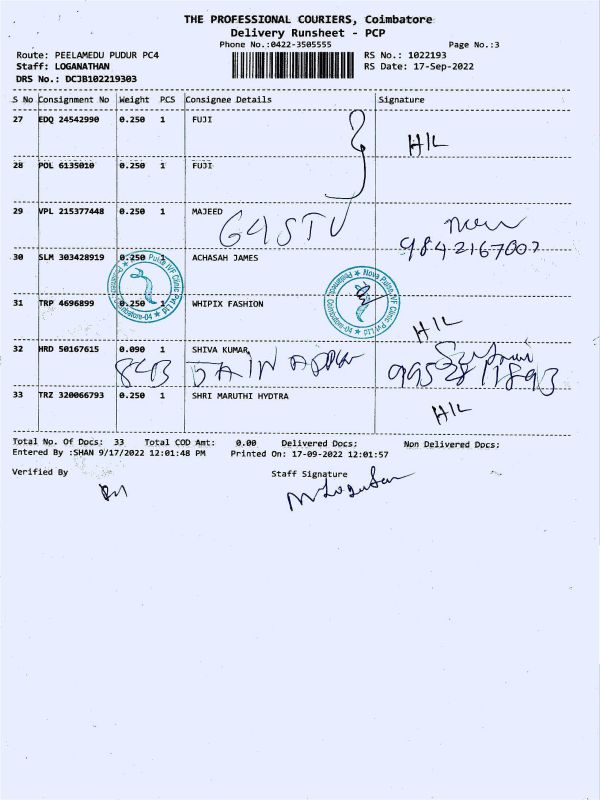 THE PROFESSIONAL COURIERS, Coimbatore
Delivery Runsheet - PCP
Phone No.:0422-3505555 Page No.:3
Route: PEELAMEDU PUDUR PC4 RS No.: 1022193
Staff: LOGANATHAN RS Date: 17-Sep-2022
DRS No.: DCJB102219303
S No Consignment No Weight PCS Consignee Details Signature
27 EDQ 24542990 0.250 1 FUJI
H/L
28 POL 6135010 0.250 1 FUJI
29 VPL 215377448 0.250 1 MAJEED
9842167007
30 SLM 303428919 0.250 1 ACHASAH JAMES
Nova Pulse IVF Clinic Pvt Ltd
31 TRP 4696899 0.250 1 WHIPIX FASHION
H/L
32 HRD 50167615 0.090 1 SHIVA KUMAR
JAIN
33 TRZ 320066793 0.250 1 SHRI MARUTHI HYDTRA
H/L
Total No. Of Docs: 33 Total COD Amt: 0.00 Delivered Docs: Non Delivered Docs:
Entered By :SHAN 9/17/2022 12:01:48 PM Printed On: 17-09-2022 12:01:57
Verified By Staff Signature